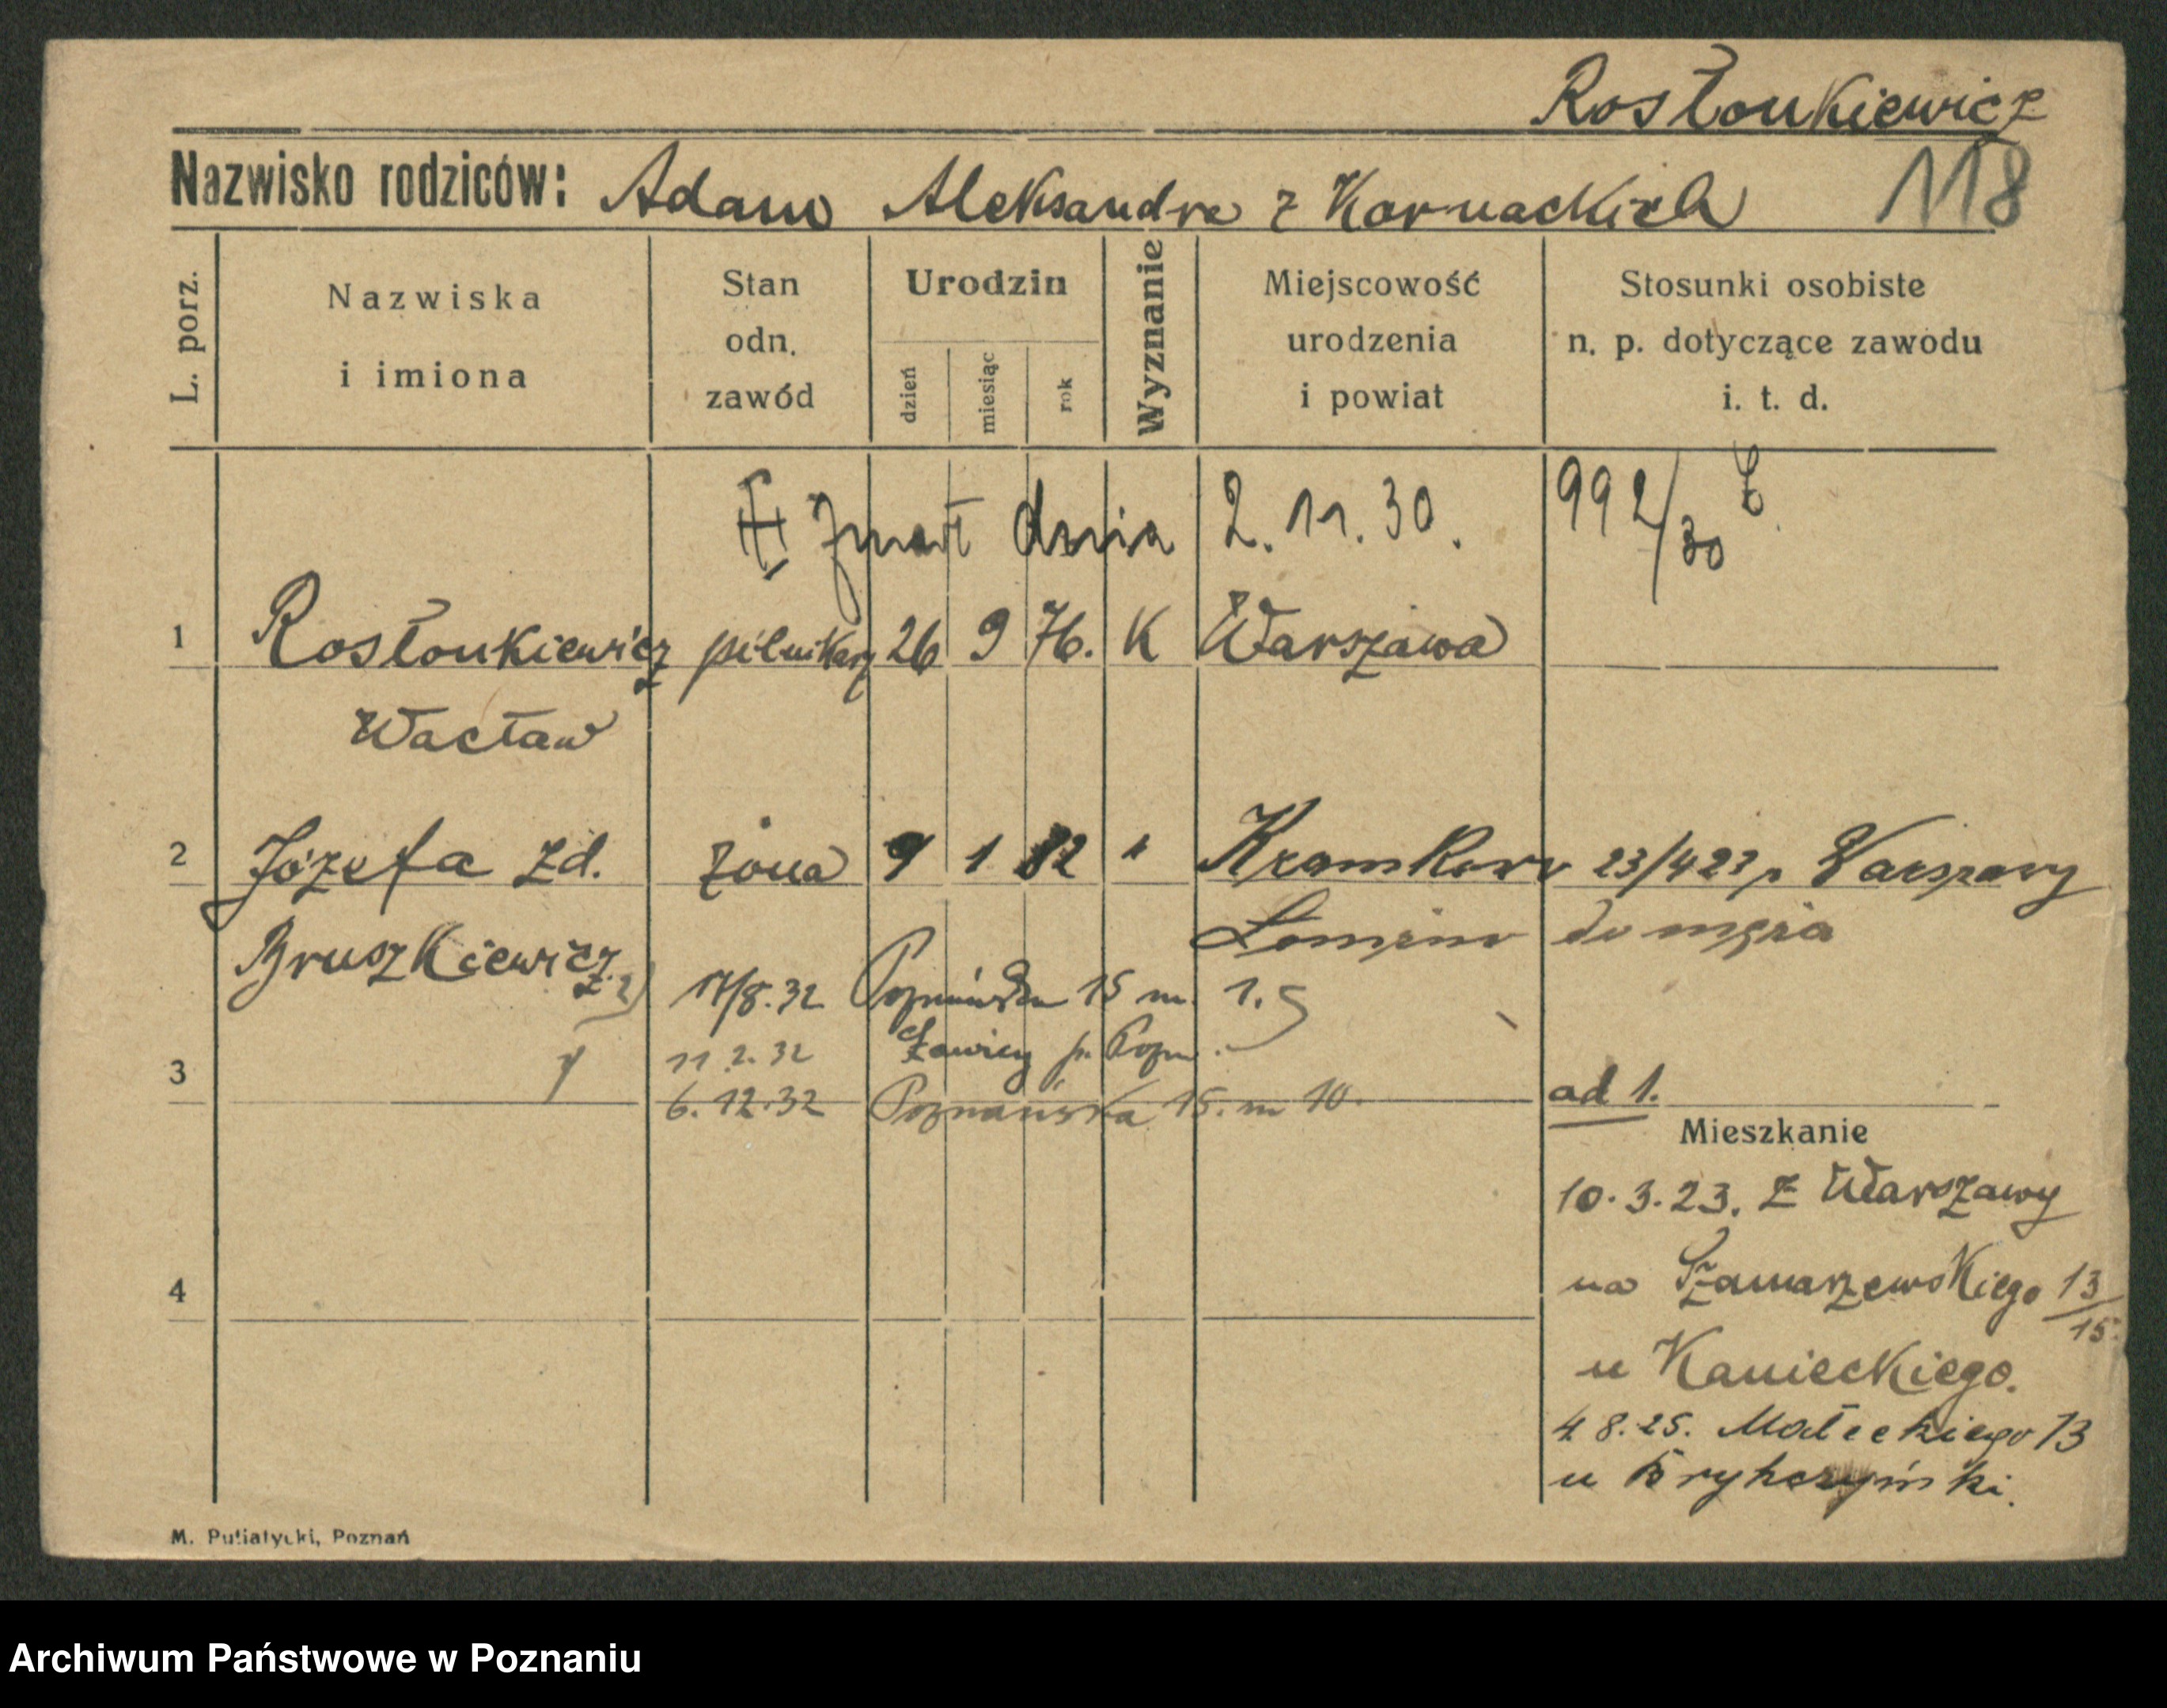 Rosłonkiewicz
Nazwisko rodziców: Adam Aleksandra z Kornackich 118
L. porz.
Nazwiska i imiona
Stan odn. zawód
Urodzin
dzień miesiąc rok
Wyznanie
Miejscowość urodzenia i powiat
Stosunki osobiste n. p. dotyczące zawodu i. t. d.
Zmarł dnia 2. 11. 30. 992/30
1 Rosłonkiewicz pilnikarz 26 9 76. K Warszawa
Wacław
2 Józefa zd. żona 9 1 82 " Kramkowo 23/4 23 p. Warszawy
Bruszkiewicz Łomżno do męża
17/8. 32 Poznańska 15 m. 1.
3 11. 2. 32 Ławicy p. Pozn.
6. 12. 32 Poznańska 15. m 10.
ad 1.
Mieszkanie
10. 3. 23. z Warszawy
4 na Szamarzewskiego 13/15
u Kanieckiego.
4 8. 25. Małeckiego 13
u Brykczyński.
M. Putiatycki, Poznań
Archiwum Państwowe w Poznaniu